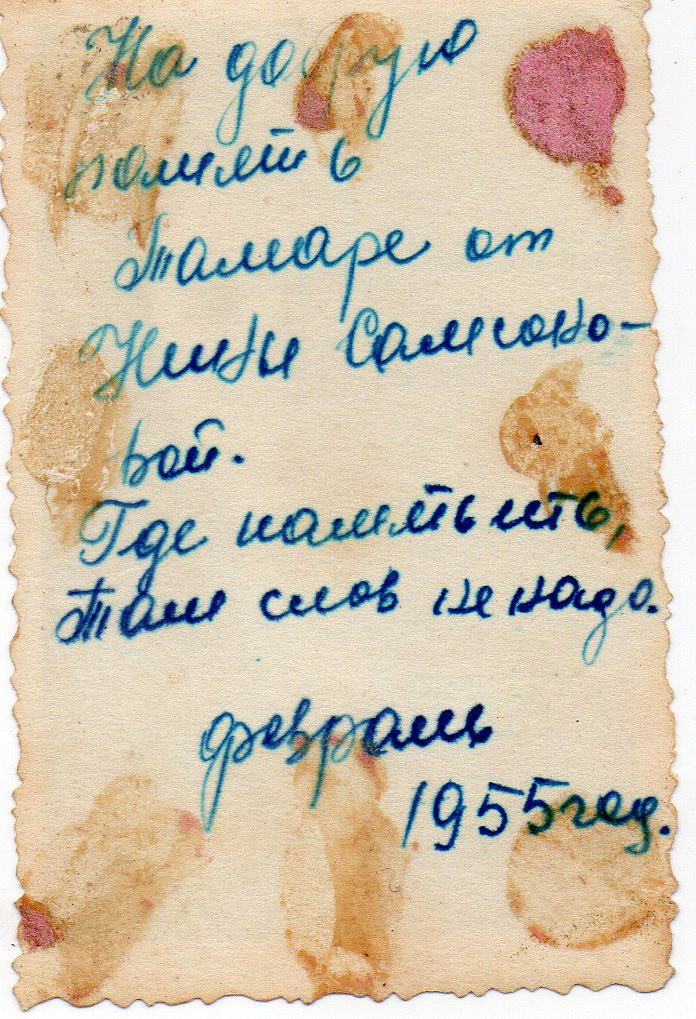 На добрую
память
Тамаре от
Нины Самсоно-
вой.
Где память есть,
там слов не надо.
февраль
1955 год.